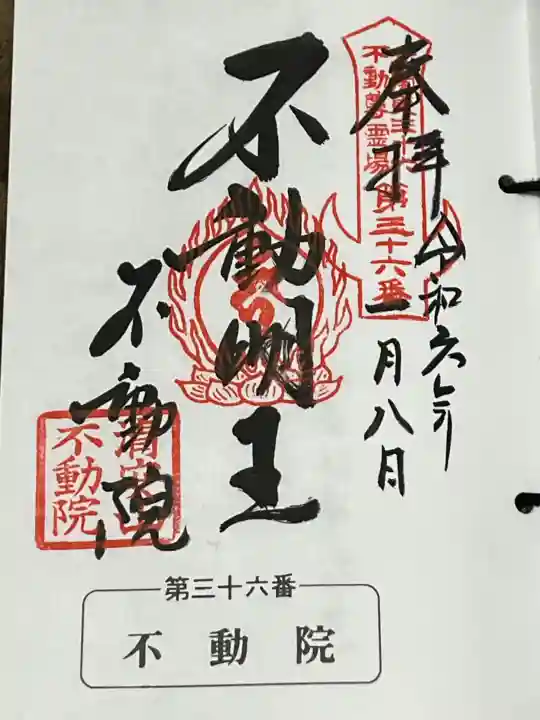 奉拝
令和六年
一月八日
不動尊霊場
第三十六番
不動明王
不動院
不動院
第三十六番
不動院